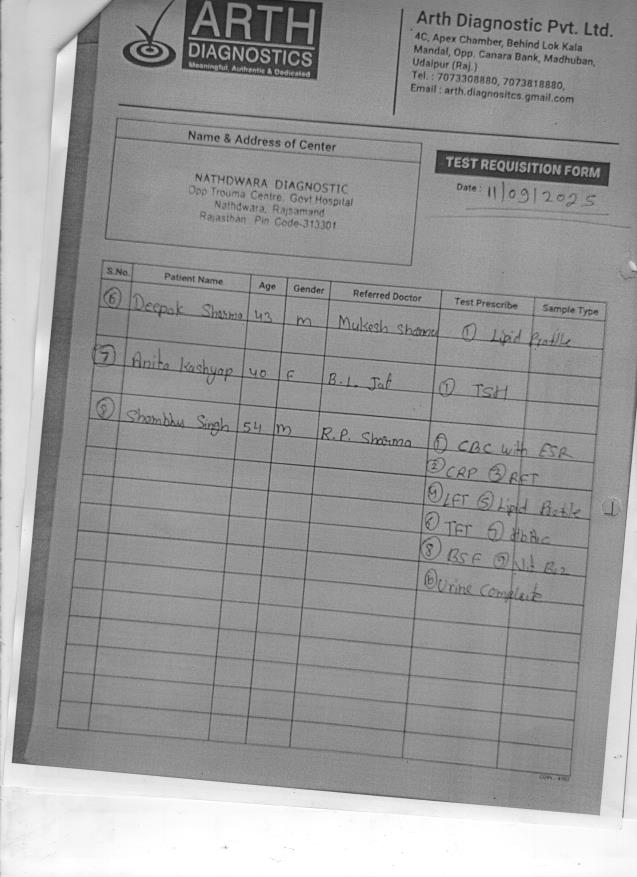 ARTH
DIAGNOSTICS
Meaningful, Authentic & Dedicated
Arth Diagnostic Pvt. Ltd.
4C, Apex Chamber, Behind Lok Kala
Mandal, Opp. Canara Bank, Madhuban,
Udaipur (Raj.)
Tel. : 7073308880, 7073818880,
Email : arth.diagnositcs.gmail.com
Name & Address of Center
NATHDWARA DIAGNOSTIC
Opp Trouma Centre, Govt Hospital
Nathdwara, Rajsamand
Rajasthan Pin Code-313301
TEST REQUISITION FORM
Date : 11/09/2025
S.No. Patient Name Age Gender Referred Doctor Test Prescribe Sample Type
6 Deepak Sharma 43 m Mukesh Sharma 1 Lipid Profile
7 Anita Kashyap 40 F B.L. Jat 1 TSH
8 Shambhu Singh 54 m R.P. Sharma 1 CBC with ESR
2 CRP 3 RFT
4 LFT 5 Lipid Profile
6 TFT 7 HbA1c
8 BSF 9 Vit B12
10 Urine Complete